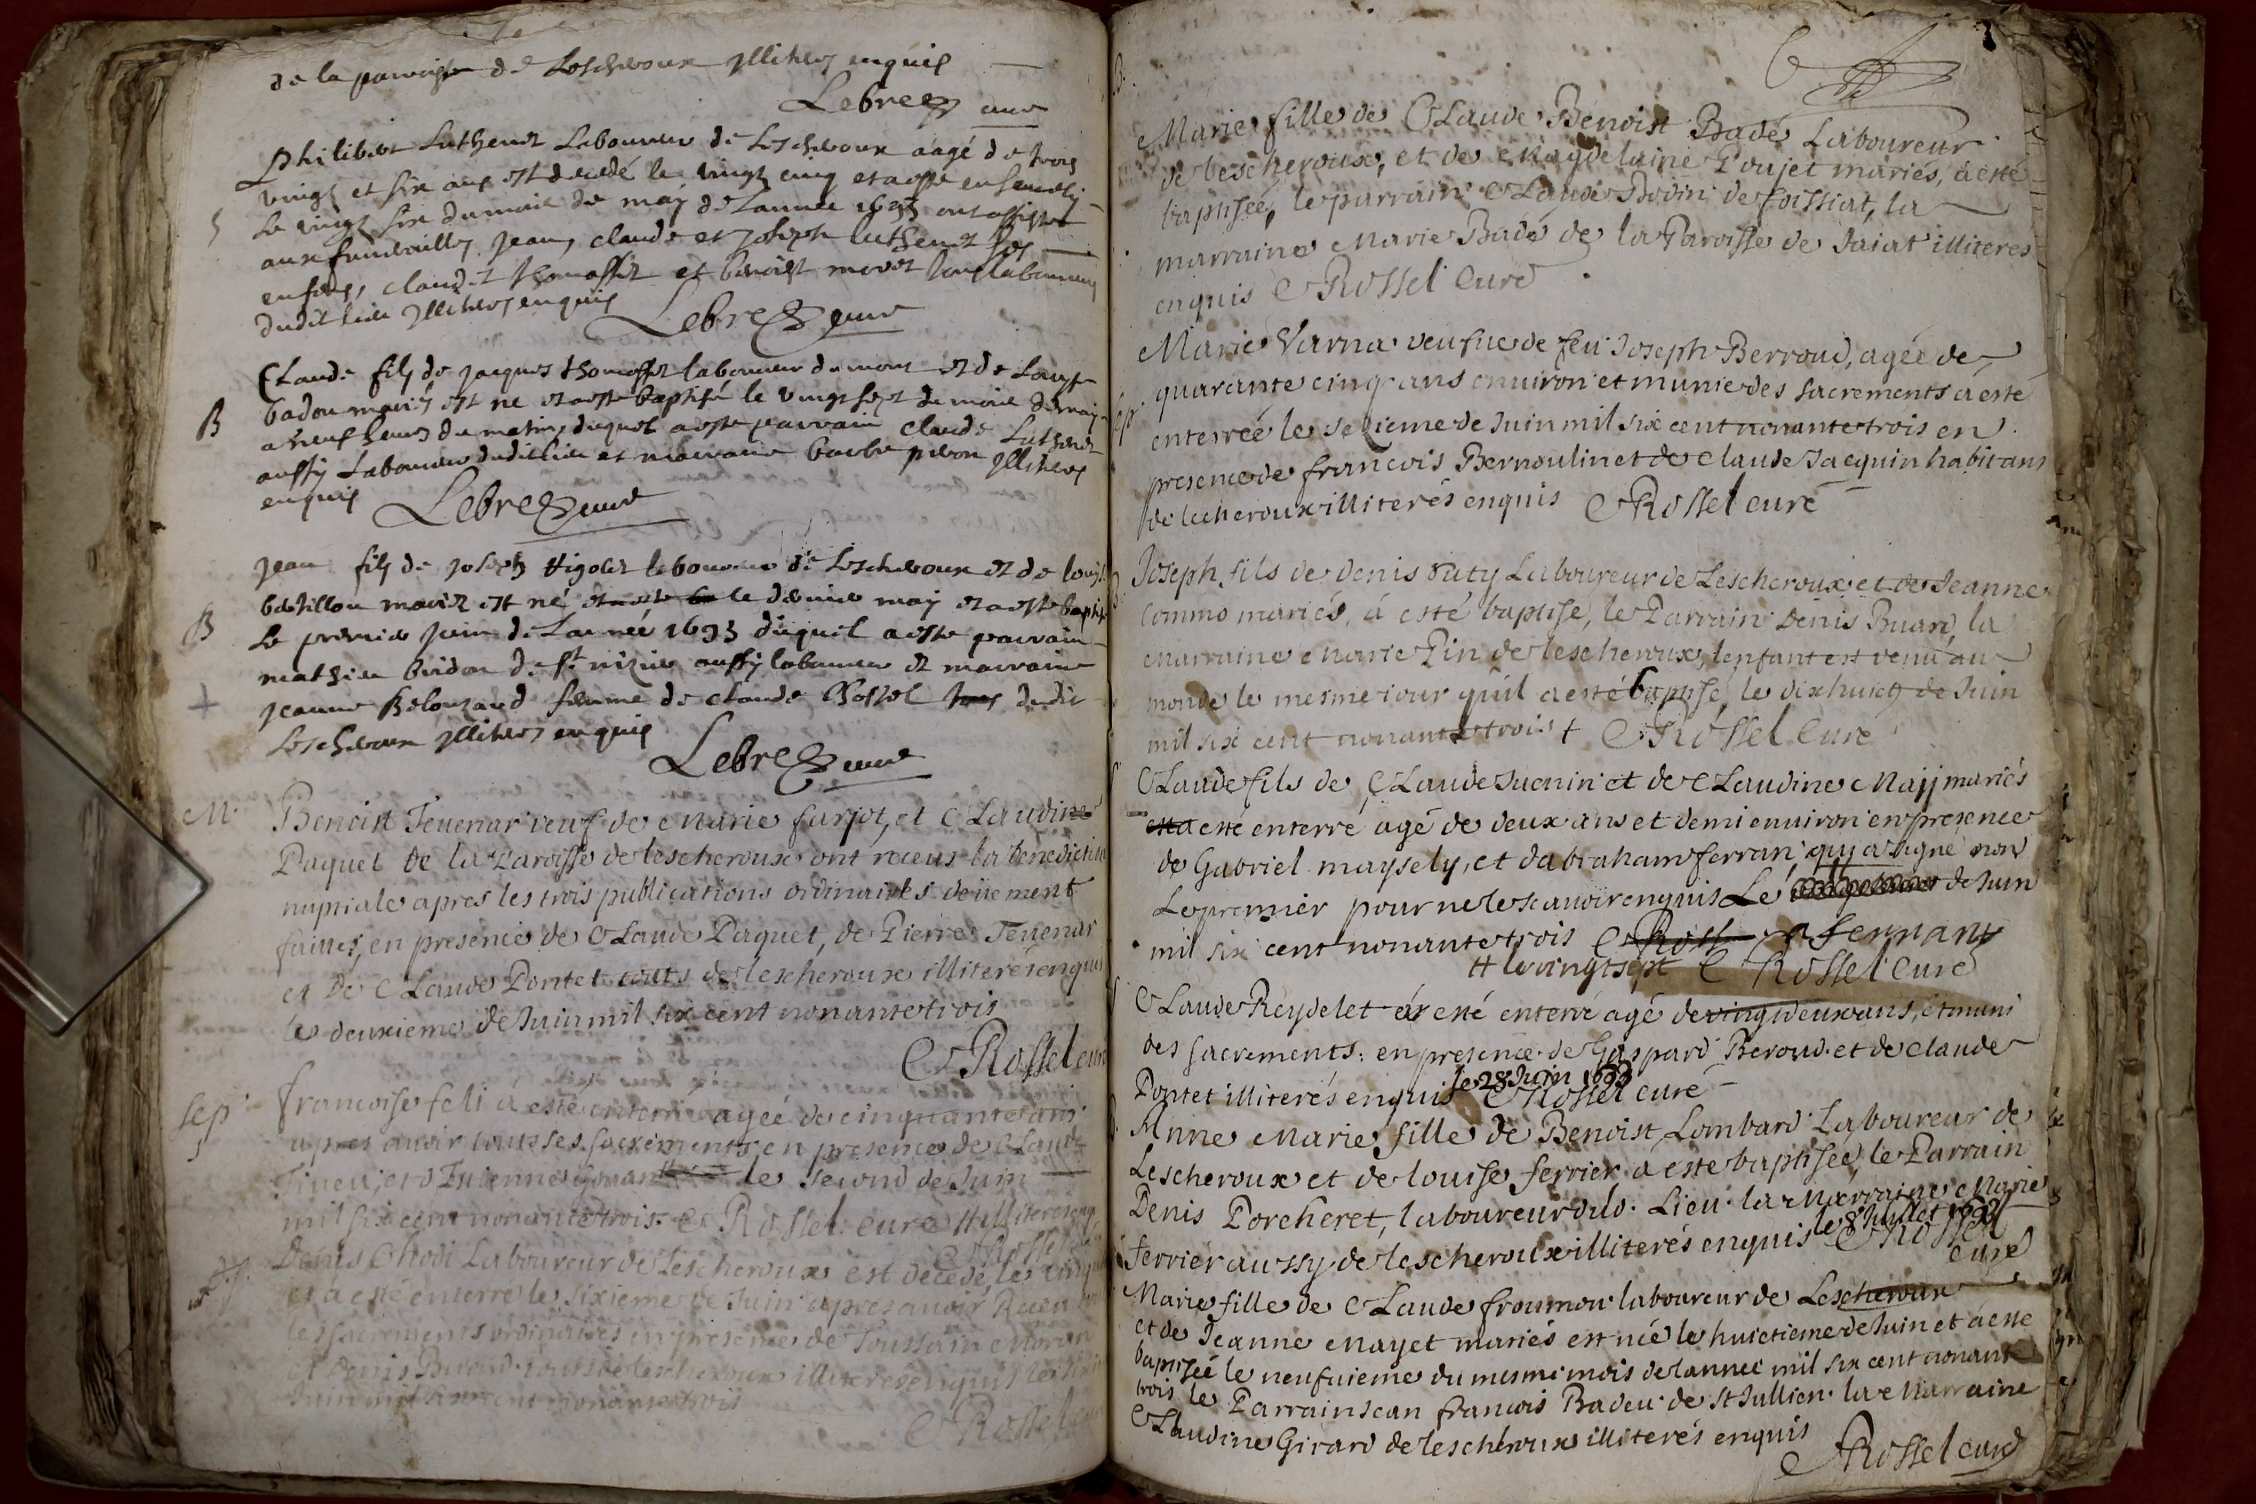 de la parroisse de Lescheroux illiteres enquis
Lebrez curé
Philibert Luthenet Laboureur de Lescheroux aagé de trois
vingt et six ans est decedé le vingt cinq et a esté ensevely
S
Le vingt six du mois de may de Lannee 1693 ont assisté
aux funerailles Jean, claude et joseph luthenet ses
enfans, claude thomasset et benoist moret tous laboureurs
dudit lieu illiteres enquis
Lebrez curé
Claude fils de jacques thomasset laboureur du mont et de Louyse
B
badou mariés est né et a esté baptisé le vingt sept du mois de may
a neuf heures du matin, duquel a esté parrain claude Luthenet
aussy Laboureur dudit lieu et marraine barbe piron illiteres
enquis
Lebrez curé
Jean fils de joseph Higolet laboureur de Lescheroux et de louyse
bestillon mariez est né le dernier may et a esté baptisé
B
Le premier juin de Lannée 1693 duquel a esté parrain
mathieu bridon de St nizier aussy laboureur et marraine
+
jeanne Belouzard femme de claude Chossel dudit
Lescheroux illiteres enquis
Lebrez curé
M.
Benoist Tevenar veuf de Marie farjot, et Claudine
Paquet de la Paroisse de lescheroux ont receus la benediction
nuptiale apres les trois publications ordinaires deüement
faittes, en presence de Claude Paquet, de Pierre Tevenar
et De Claude Pontet touts de lescheroux illiterés enquis
le deuxieme de Juin mil six cent nonante trois
C Rossel curé
sep.
francoise feli a esté enterrée agée de cinquante ans
apres avoir tous ses sacrements en presence de Claude
et d'Estienne le second de Juin
mil six cent nonante trois. C Rossel curé # illiteres enq
C Rossel
Denis Chodi Laboureur de Lescheroux est decedé le cinq
et a esté enterré le sixieme de Juin apres avoir Receu
les sacrements ordinaires en presence de Toussain Moran
et Denis Buard touts de lescheroux illiteres enquis
Juin mil six cent nonante trois
C Rossel
Marie fille de Claude Benoist Badé Laboureur
de lescheroux, et de Magdelaine Poujet mariés, a esté
baptisée, le parrain Claude Bovin de foissiat, la
marraine Marie Badé de la Paroisse de Jaiat illiteres
enquis C Rossel Curé
Marie Varna veufue de feu Joseph Berroud, agée de
quarante cinq ans environ et munie des sacrements a esté
enterrée le sezieme de Juin mil six cent nonante trois en
presence de francois Bernoulin et de Claude Jacquin habitans
de lecheroux illiterés enquis C Rossel curé
Joseph fils de denis Puty Laboureur de Lescheroux et de Jeanne
Commo mariés, a esté baptise, le Parrain Denis Buard, la
Marraine Marie Pin de lescheroux, lenfant est venu au
monde le mesme iour qu'il a esté baptisé, le dixhuict de Juin
mil six cent nonante trois + C Rossel Curé
Claude fils de Claude Juenin et de Claudine Majj mariés
esté enterré agé de deux ans et demi environ en presence
de Gabriel maysely, et dabraham ferran, qui a signé non
Le premier pour ne le scavoir enquis Le de Juin
mil six cent nonante trois C Ross A ferrant
# le vingt sept C Rossel Curé
Claude Reydelet a esté enterré agé de vingt deux ans, et muni
des sacrements, en presence de Gaspard Beroud et de Claude
Pontet illiterés enquis le 28 Juin 1693 C Rossel curé
Anne Marie fille de Benoist Lombard Laboureur de
Lescheroux et de louise ferrier a esté baptisée, le Parrain
Denis Porcheret, laboureur dud. Lieu. la Marraine Marie
ferrier aussy de lescheroux illiterés enquis le 8 Juillet 1693 C Rossel
Curé
Marie fille de Claude froumou laboureur de Lescheroux
et de Jeanne Mayet mariés est née le huictieme de Juin et a esté
baptisée le neufvieme du mesme mois de lannée mil six cent nonante
trois le Parrain Jean francois Badeu de St Jullien. la Marraine
Claudine Girard de lescheroux illiterés enquis
C Rossel curé